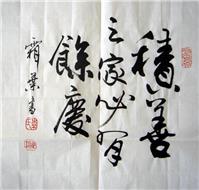 積善
之家必有
餘慶
霜葉書